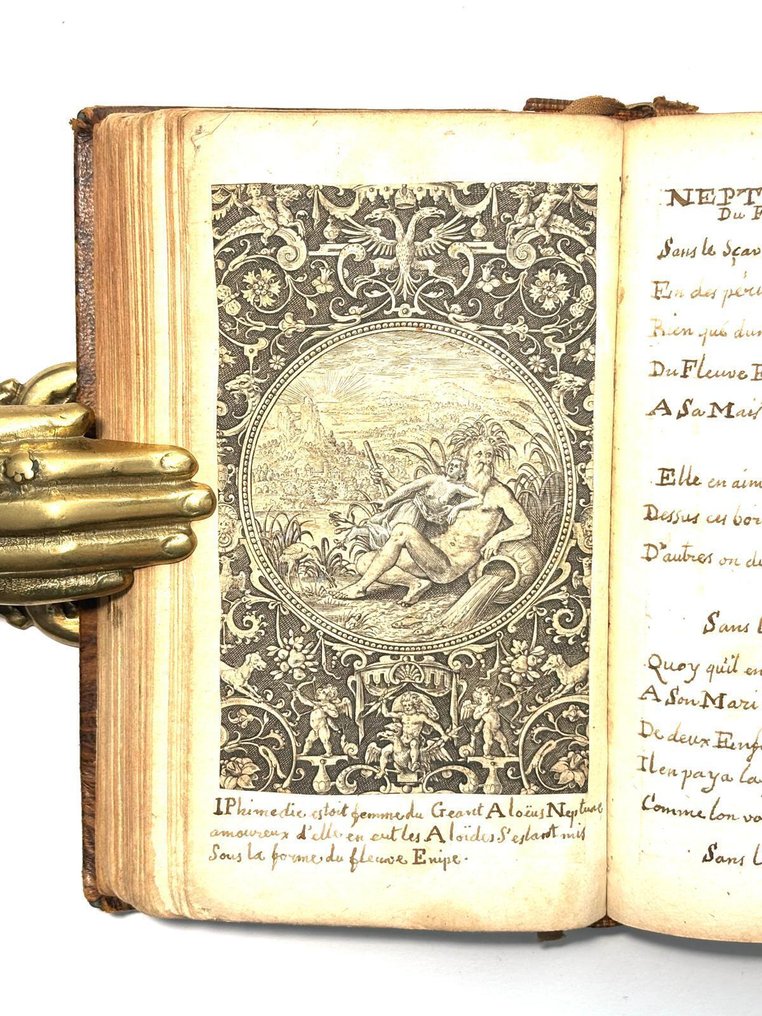 IPhimedie estoit femme du Geant Aloëus Neptune
amoureux d'elle en eut les Aloïdes S'estant mis
Sous la forme du fleuve Enipe.
NEPT
Du F
Sans le sçav
En des péri
Rien que dun
Du Fleuve E
A Sa Mais
Elle en aim
Dessus ces bor
D'autres on du
Sans l
Quoy qu'il en
A Son Mari
De deux Enf
Il en paya la
Comme lon vo
Sans l